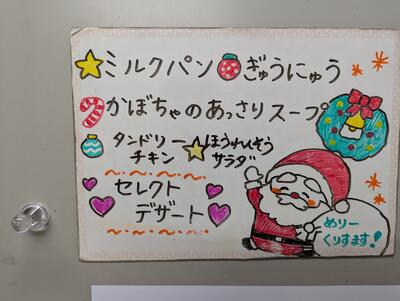 ミルクパン ぎゅうにゅう
かぼちゃのあっさりスープ
タンドリーチキン
ほうれんそうサラダ
セレクト
デザート
めりー
くりすます!